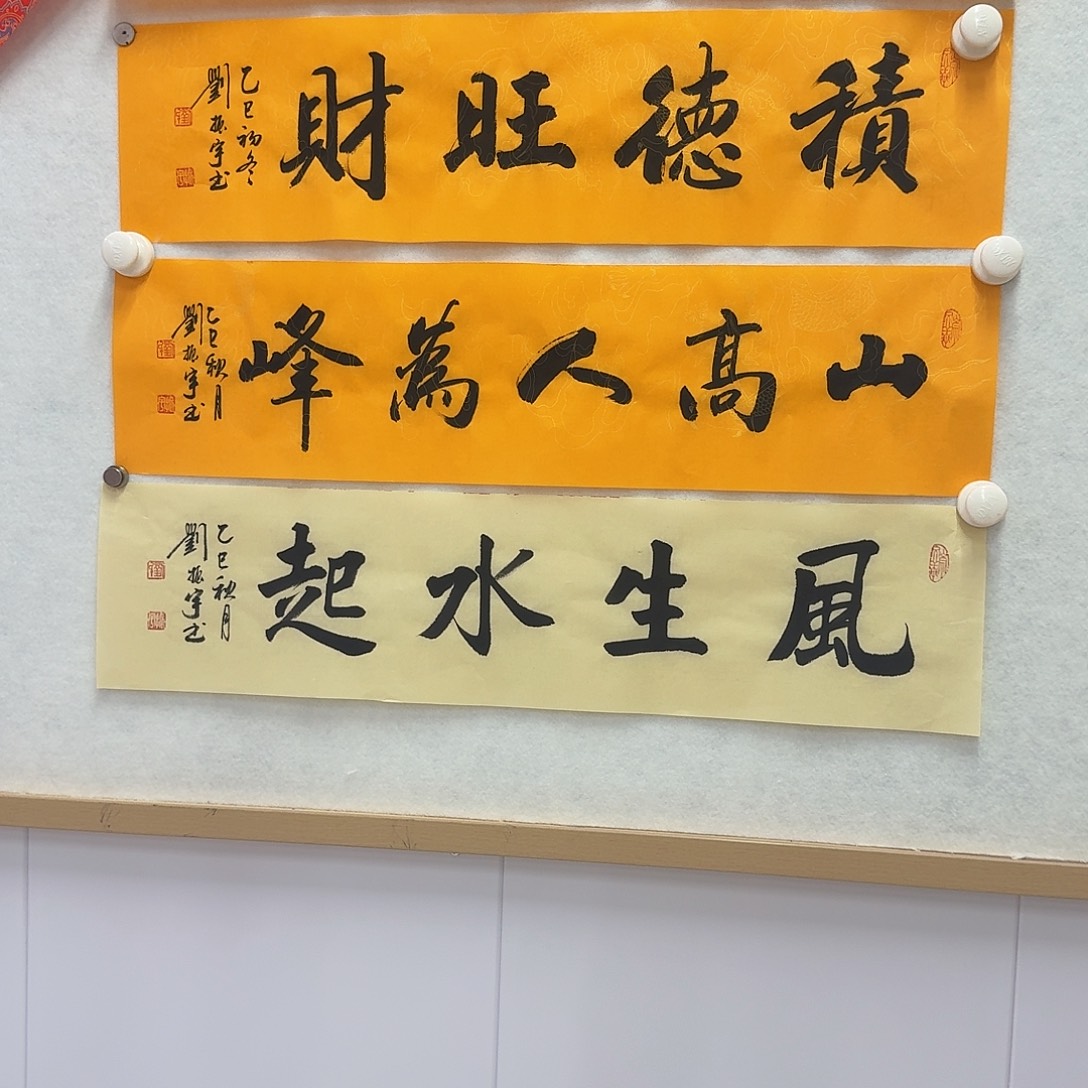 積德旺財
乙巳初冬
劉振宇书
山高人為峰
乙巳秋月
劉振宇书
風生水起
乙巳秋月
劉振宇书